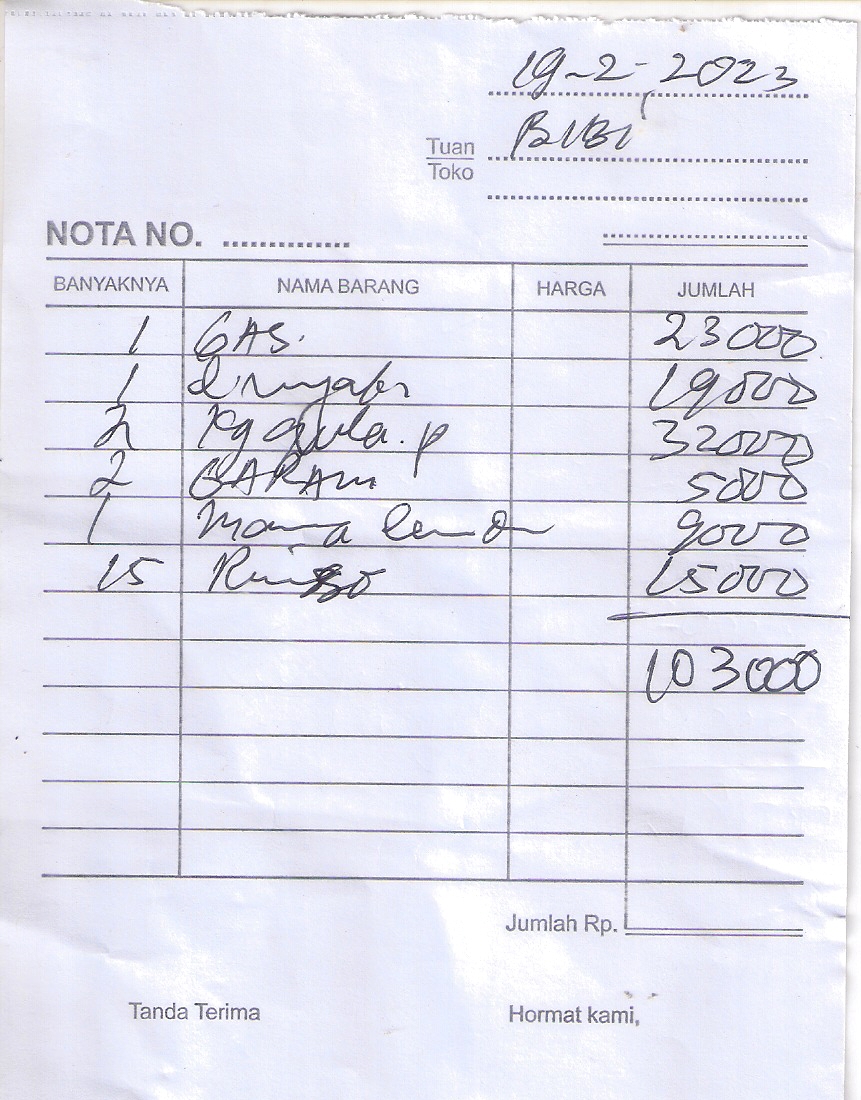 19-2-2023
Tuan BIBI
Toko
NOTA NO. ..............
BANYAKNYA NAMA BARANG HARGA JUMLAH
1 GAS. 23000
1 19000
2 kg gula.p 32000
2 GARAM 5000
1 Mama lemon 9000
15 Rinso 15000
103000
Jumlah Rp.
Tanda Terima Hormat kami,